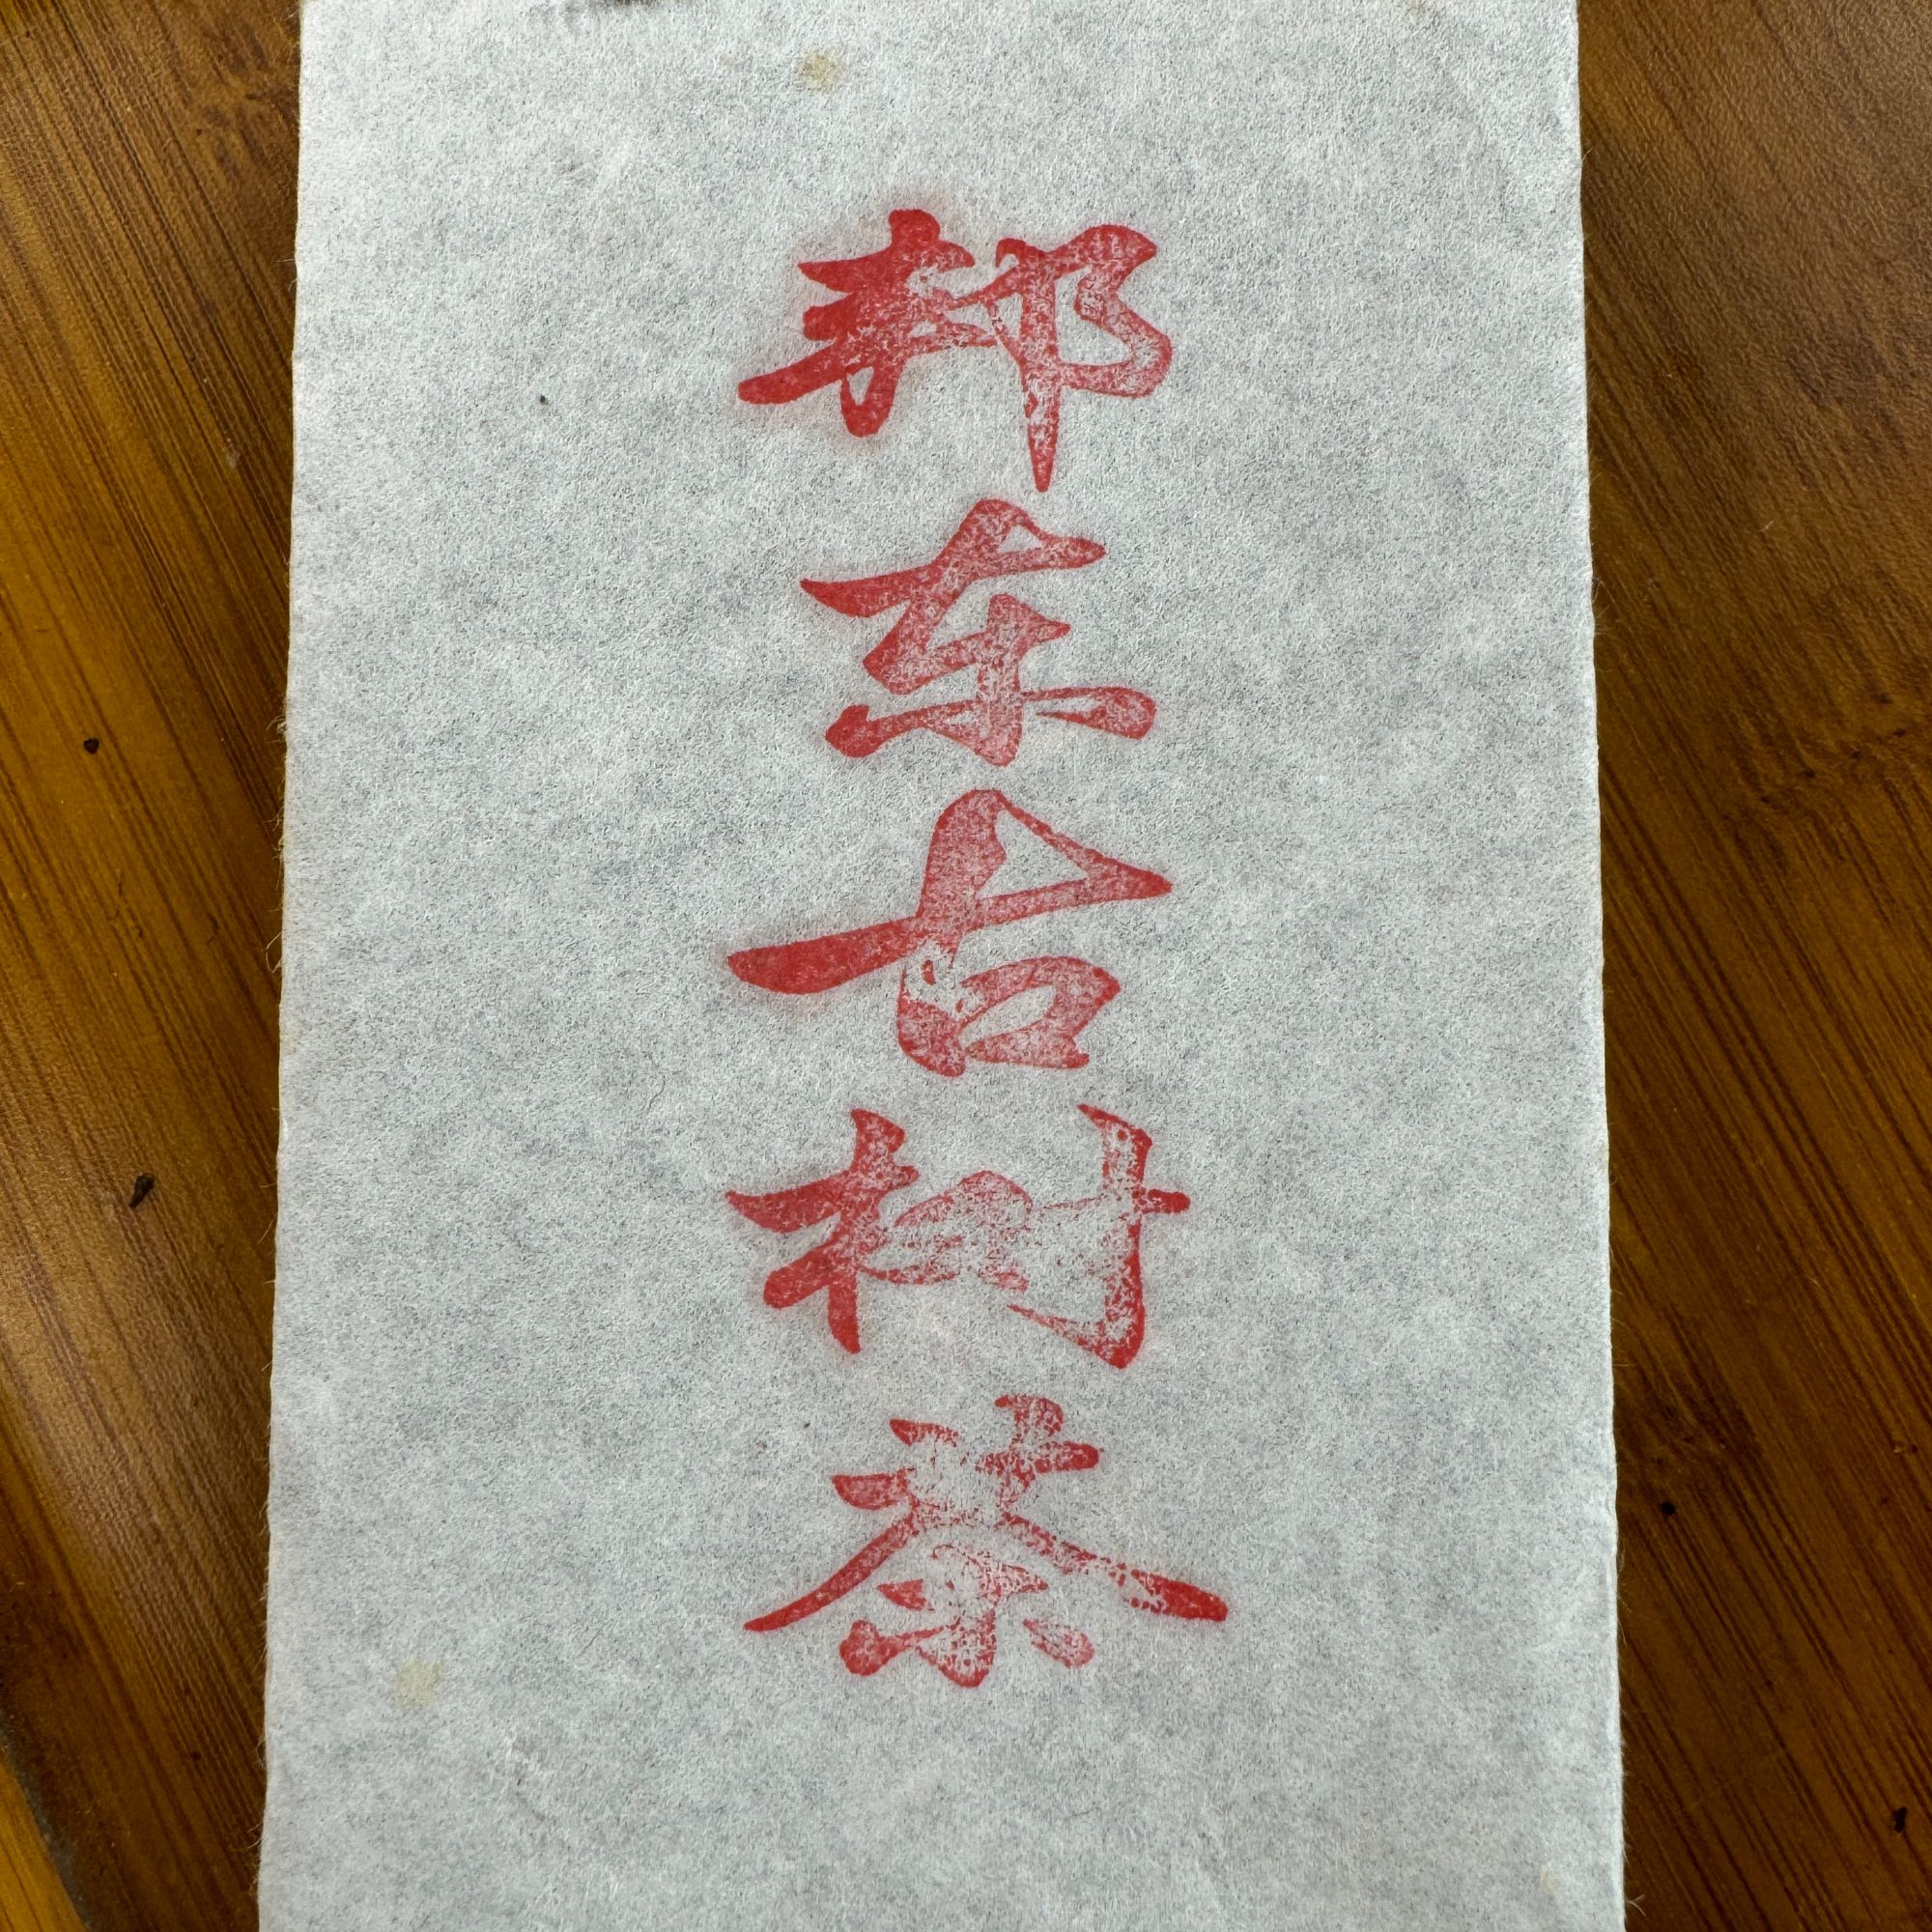 邦东古树茶